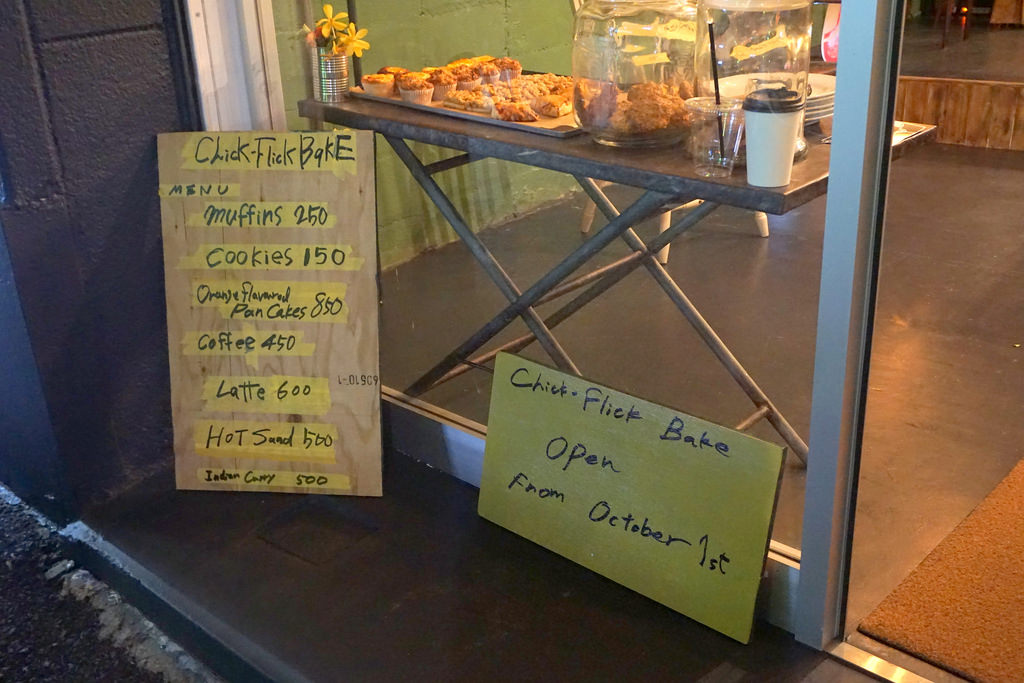 Chick-Flick BakE
MENU
muffins 250
Cookies 150
Orange flavoured
Pan Cakes 850
Coffee 450
Latte 600
HOT Sand 500
Indian Curry 500
60510-1
Chick-Flick Bake
Open
From October 1st